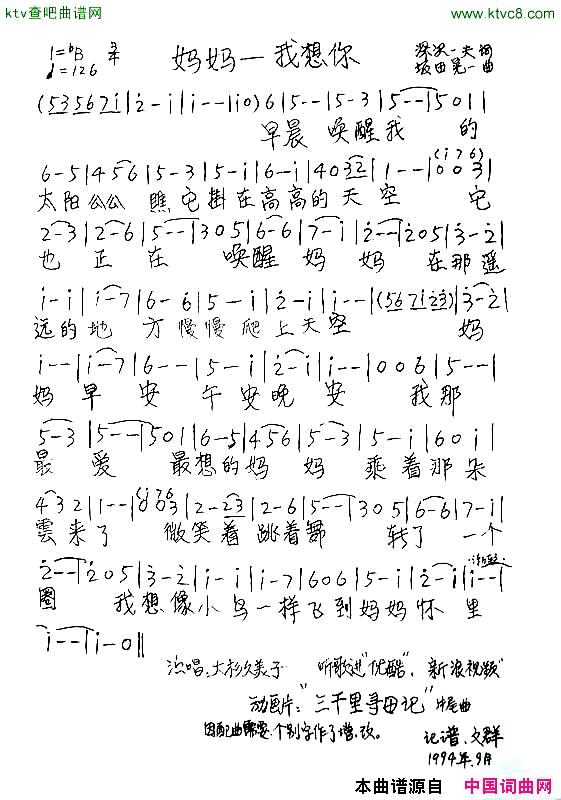 ktv查吧曲谱网 www.ktvc8.com
1=♭B 3/4 妈妈—我想你 深沢一夫 词
♩=126 坂田晃一 曲
(535671̇|2̇-1̇|1̇--|1̇0)6|5--|5-3|5--|501̇|
早晨 唤醒我 的
6-5|456|5-3|5-1̇|6-1̇|4032|1--|(1̇76)003|
太阳公公 瞧它掛在高高的天空 它
2-3|2-6|5--|305|6-6|7-1̇|2̇--|2̇05|3̇-2̇|
也 正 在 唤醒 妈 妈 在那遥
1̇-1̇|1̇-7|6-6|5-1̇|2̇-1̇|1̇--|(5671̇2̇3̇)|3̇-2̇|
远的地 方慢慢爬上天空 妈
1̇--|1̇-7|6--|5-1̇|2̇-1̇|1̇--|006|5--|
妈 早 安 午安晚 安 我那
5-3|5--|501̇|6-5|456|5-3|5-1̇|601̇|
最 爱 最想的妈 妈 乘着那朵
432|1--|(1̇76)003|2-23|2-6|5--|305|6-6|7-1̇|
雲来了 微笑着跳着舞 转了 一个
渐轻
2̇--|2̇05|3̇-2̇|1̇-1̇|1̇-7|606|5-1̇|2̇-1̇|1̇--|
圈 我想像小鸟一样飞到妈妈怀里
1̇--|1̇-0‖
演唱:大杉久美子 听歌进"优酷"、新浪视频"
动画片:"三千里寻母记"片尾曲
因配曲需要个别字作了增、改。 记谱、文群
1994年.9月
本曲谱源自 中国词曲网